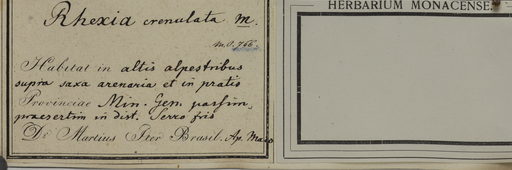 Rhexia crenulata m.
m.O. 766.
Habitat in altis alpestribus
supra saxa arenaria et in pratis
Provinciae Min. Gen. passim,
praesertim in dist. Serro frio
Dr. Martius Iter Brasil. Ap. Majo
HERBARIUM MONACENSE.